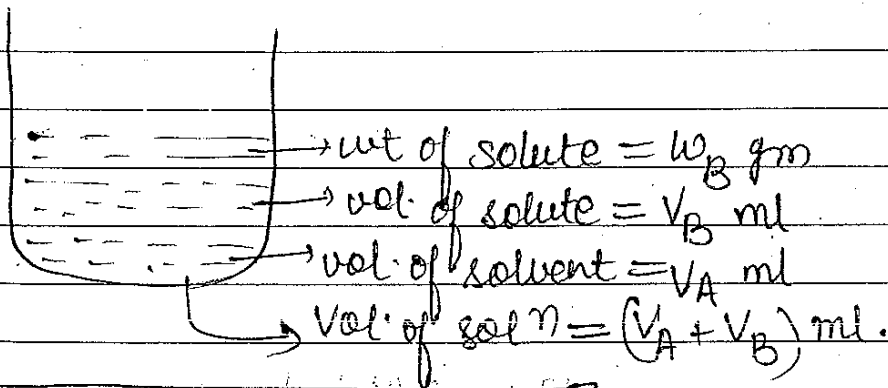 wt of solute = W_B gm
vol. of solute = V_B ml
vol. of solvent = V_A ml
Vol. of sol n = (V_A + V_B) ml.